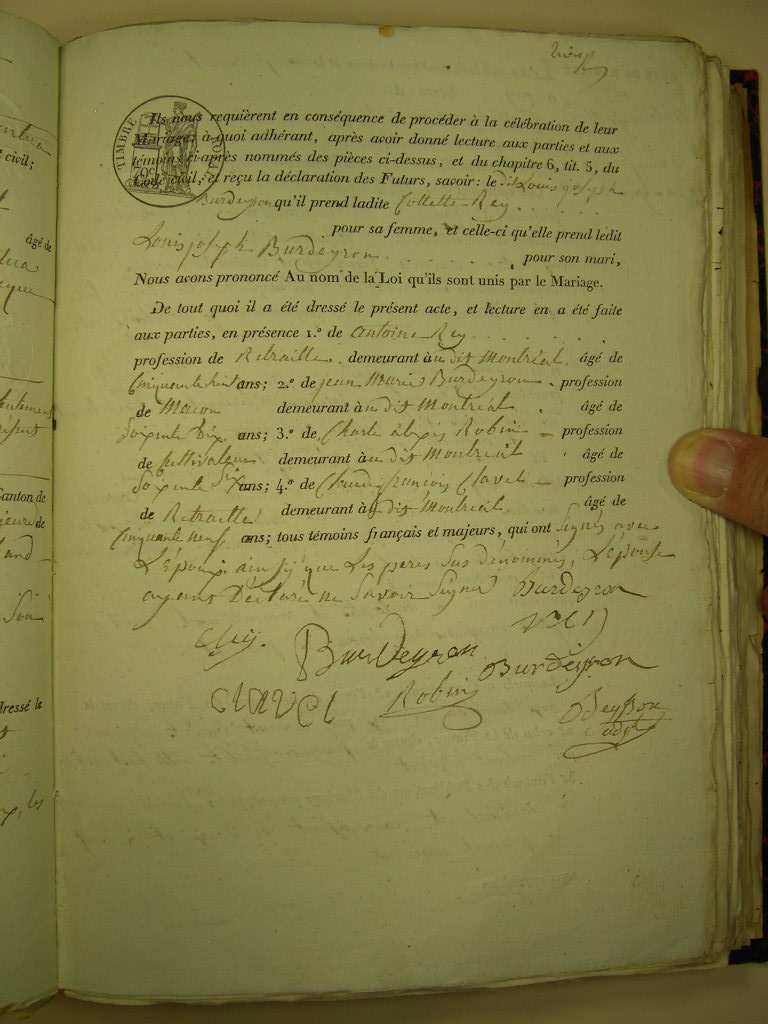 TIMBRE
Ils nous requièrent en conséquence de procéder à la célébration de leur
Mariage; à quoi adhérant, après avoir donné lecture aux parties et aux
témoins ci-après nommés des pièces ci-dessus, et du chapitre 6, tit. 5, du
Code civil, et reçu la déclaration des Futurs, savoir: le dit Louis joseph
Burdeyron qu'il prend ladite Collette Rey
pour sa femme, et celle-ci qu'elle prend ledit
Louis joseph Burdeyron pour son mari,
Nous avons prononcé Au nom de la Loi qu'ils sont unis par le Mariage.
De tout quoi il a été dressé le présent acte, et lecture en a été faite
aux parties, en présence 1.º de antoine Rey
profession de Retraille demeurant à u dit Montréal âgé de
ans; 2.º de jean Marie Burdeyron profession
de Macon demeurant à u dit Montréal âgé de
Soixente Dix ans; 3.º de Charle aléxis Robin profession
de Cultivateur demeurant à u dit Montréal âgé de
Soixente Dix ans; 4.º de Claude françois Clavel profession
de Retraille demeurant à u dit Montréal âgé de
Cinquante neuf ans; tous témoins français et majeurs, qui ont Signés avec
L'époux ainsi que Les peres Sus dénommés, L'épouse
ayant Déclaré ne Savoir Signer Burdeyron
BurDeyron Burdeyron
ClAVEl Robin
civil;
âgé de
Canton de
de
dressé le
les